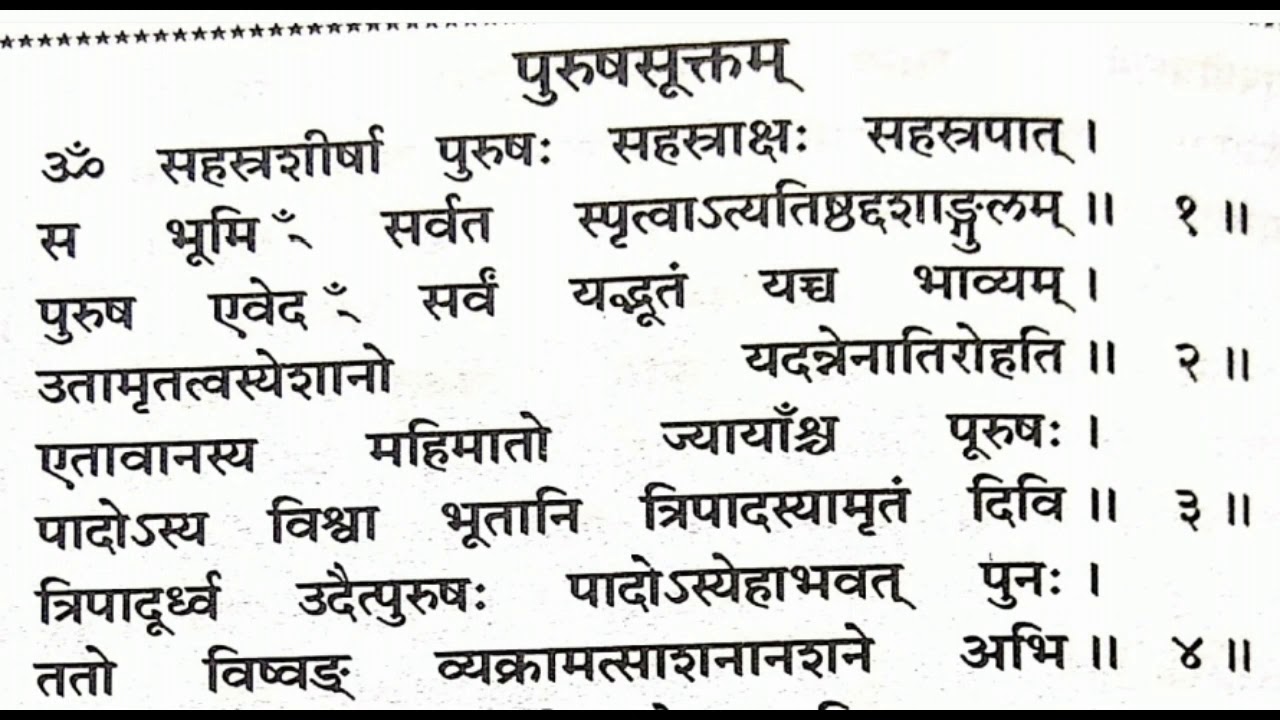 पुरुषसूक्तम्
ॐ सहस्त्रशीर्षा पुरुषः सहस्त्राक्षः सहस्त्रपात् ।
स भूमिꣳ सर्वत स्पृत्वाऽत्यतिष्ठद्दशाङ्गुलम् ॥ १ ॥
पुरुष एवेदꣳ सर्वं यद्भूतं यच्च भाव्यम् ।
उतामृतत्वस्येशानो यदन्नेनातिरोहति ॥ २ ॥
एतावानस्य महिमातो ज्यायाँश्च पूरुषः ।
पादोऽस्य विश्वा भूतानि त्रिपादस्यामृतं दिवि ॥ ३ ॥
त्रिपादूर्ध्व उदैत्पुरुषः पादोऽस्येहाभवत् पुनः ।
ततो विष्वङ् व्यक्रामत्साशनानशने अभि ॥ ४ ॥